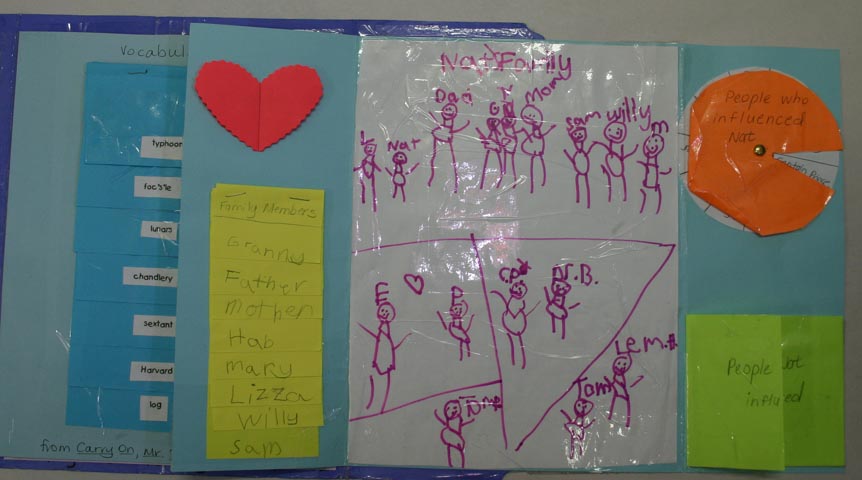 Vocabul
typhoon
foc's'le
lunars
chandlery
sextant
Harvard
log
from Carry On, Mr.
Family Members
Granny
Father
Mother
Hab
Mary
Lizza
Willy
Sam
Nat's Family
Nat
Dad
Mom
Sam
Willy
M
E
Cpt
N.B.
Lem.
Tom
People who
influenced
Nat
People Nat
influ ed